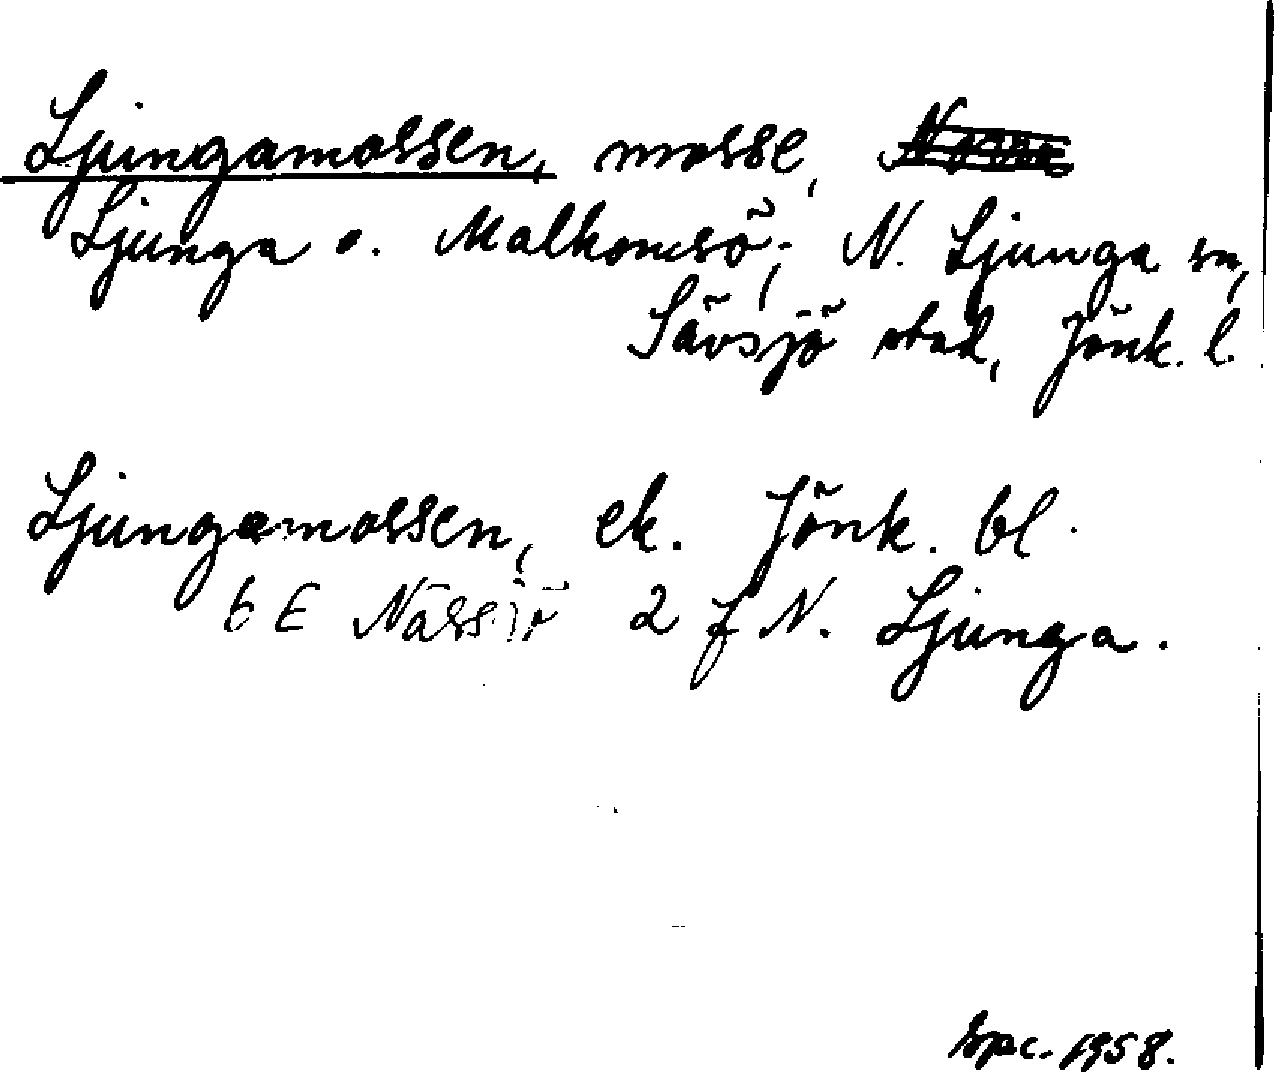 Ljungamossen, mosse,
Ljunga o. Malkomsö; N. Ljunga sn,
Sävsjö stad, Jönk. l.
Ljungamossen, ek. Jönk. bl.
6 E Nässjö 2 f N. Ljunga.
spc. 1958.